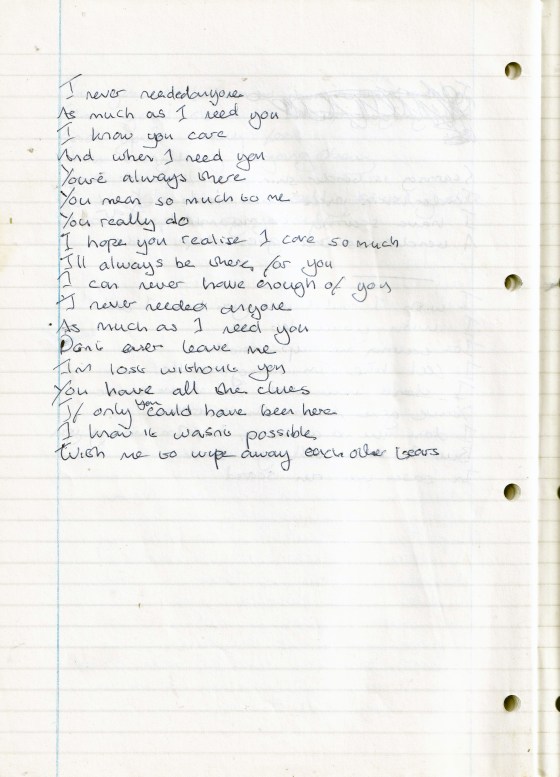 I never needed anyone
As much as I need you
I know you care
And when I need you
You're always there
You mean so much to me
You really do
I hope you realise I care so much
I'll always be there for you
I can never have enough of you
I never needed anyone
As much as I need you
Dont ever leave me
Im lost without you
You have all the clues
If only you could have been here
I know it wasnt possible
With me to wipe away each other tears